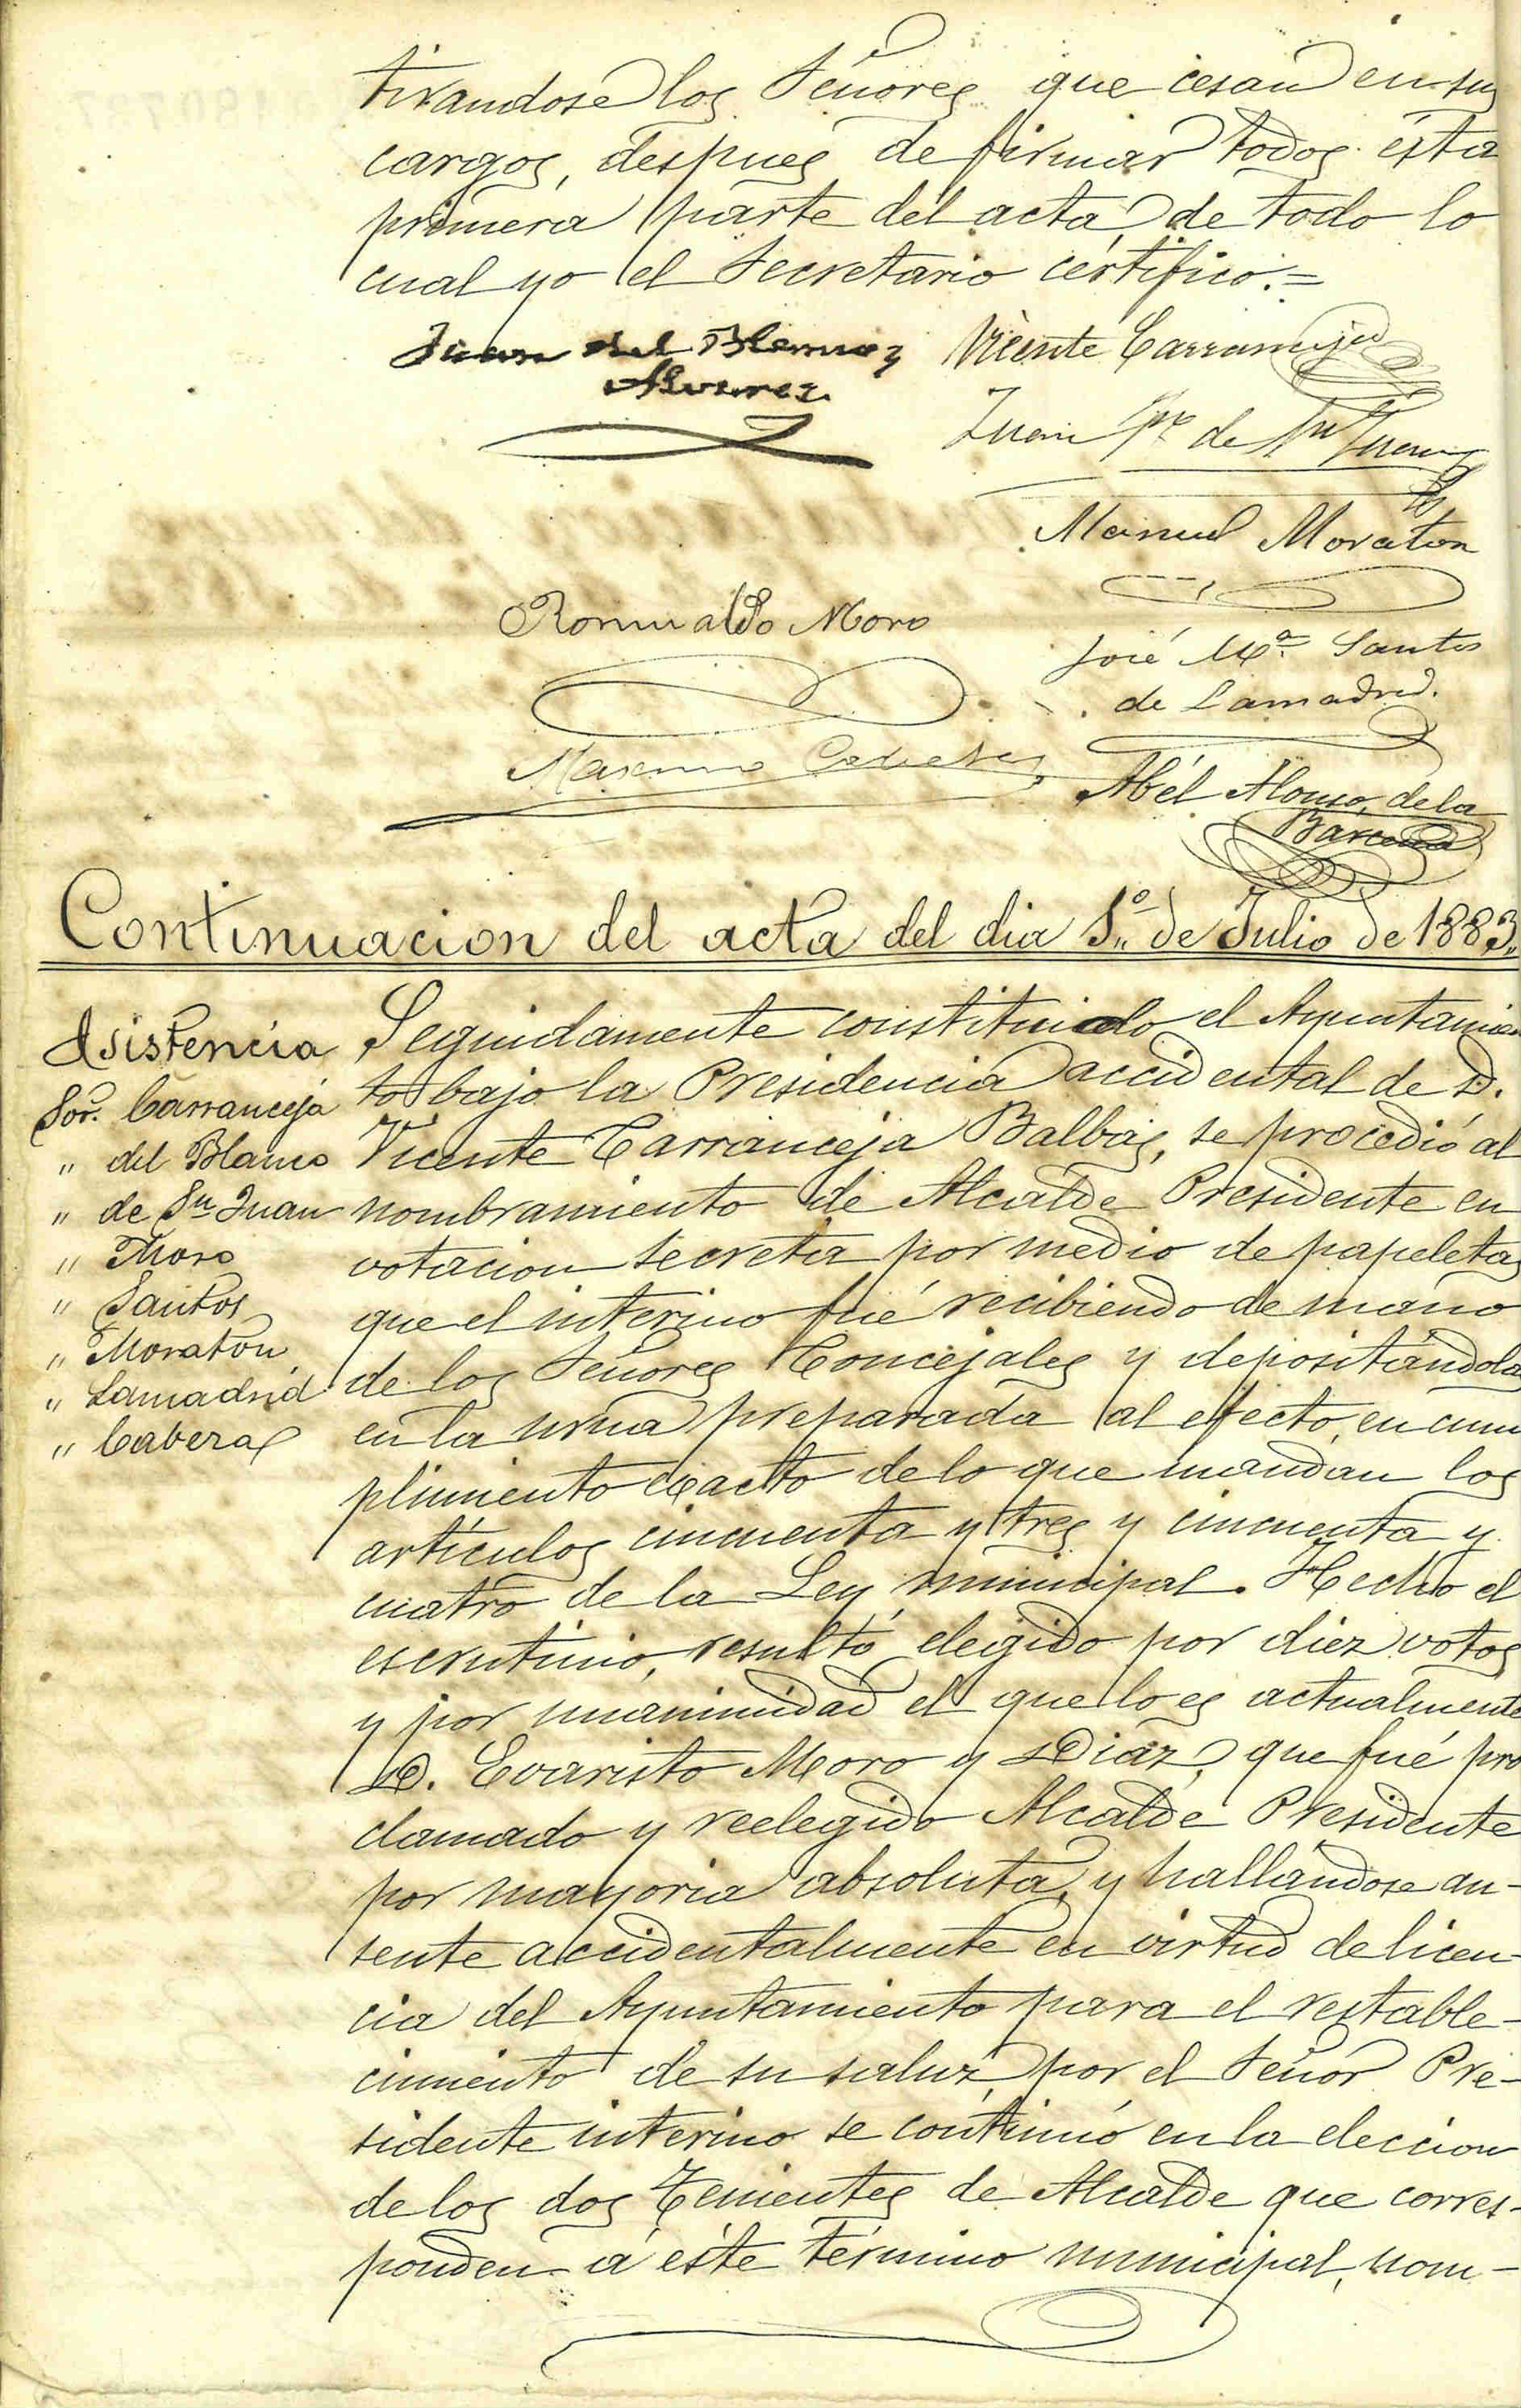 tirandose los Señores que cesan en sus
cargos, despues de firmar todos ésta
primera parte del acta de todo lo
cual yo el Secretario certifico.=
Juan del Blanco y Vicente Carranceja
Alvarez
Juan de Sn Juan
Manuel Moraton
Romualdo Moro
José Ma. Santos
de Lamadrid.
Maximo
Abél Alonso, de la
Barcena
Continuacion del acta del dia 1º de Julio de 1883.
Asistencia
Sor. Carranceja
" del Blanco
" de Sn Juan
" Moro
" Santos
" Moraton
" Lamadrid
" Cabeza
Seguidamente constituido el Ayuntamien
to bajo la Presidencia accidental de D.
Vicente Carranceja Balbás, se procedió al
nombramiento de Alcalde Presidente en
votacion secreta por medio de papeletas
que el interino fué recibiendo de mano
de los Señores Concejales y depositándolas
en la urna preparada al efecto, en cum
plimiento exacto de lo que mandan los
artículos cincuenta y tres y cincuenta y
cuatro de la Ley municipal. Hecho el
escrutinio, resultó elegido por diez votos
y por unanimidad el que lo es actualmente
D. Evaristo Moro y Diaz, que fué pro
clamado y reelegido Alcalde Presidente
por mayoria absoluta, y hallándose au-
sente accidentalmente en virtud de licen-
cia del Ayuntamiento para el restable-
cimiento de su salud, por el Señor Pre-
sidente interino se continuó en la eleccion
de los dos Tenientes de Alcalde que corres-
ponden á éste término municipal, nom-